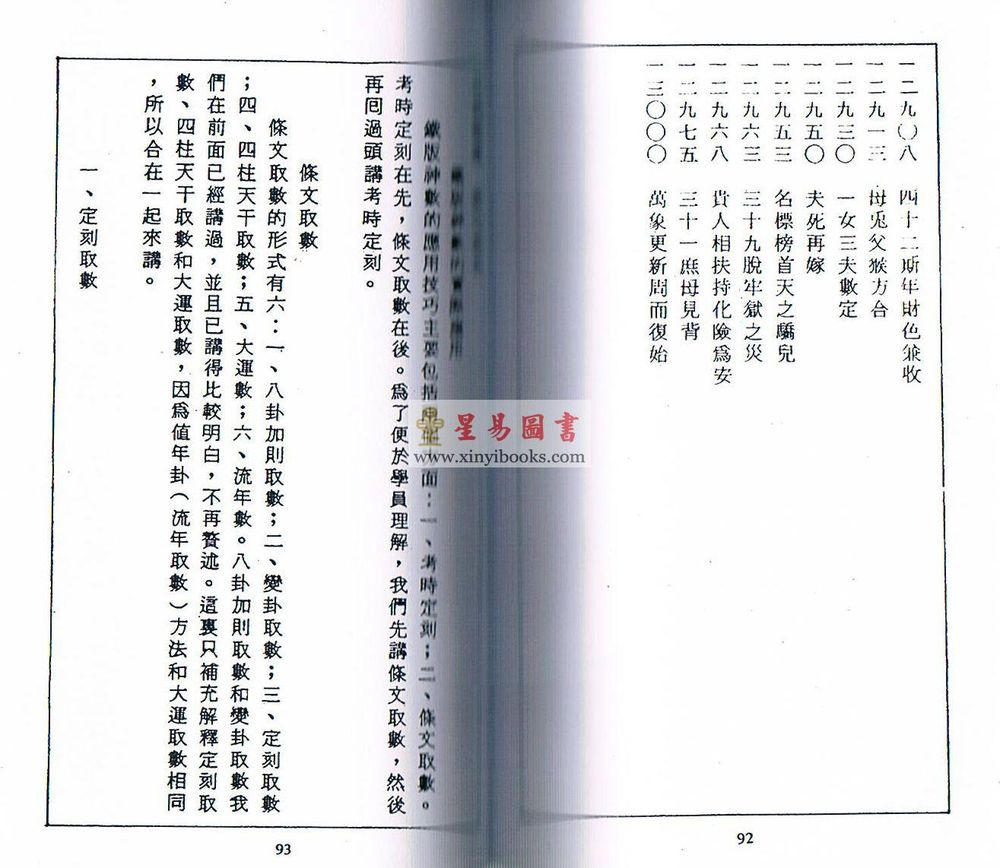 一二九〇八　四十二斯年財色兼收
一二九一三　母兎父猴方合
一二九三〇　一女三夫數定
一二九五〇　夫死再嫁
一二九五三　名標榜首天之驕兒
一二九六三　三十九脱牢獄之災
一二九六八　貴人相扶持化險爲安
一二九七五　三十一庶母見背
一三〇〇〇　萬象更新周而復始
92
鐵版神數的應用技巧主要包括面：一、考時定刻；二、條文取數。
考時定刻在先，條文取數在後。爲了便於學員理解，我們先講條文取數，然後
再囘過頭講考時定刻。
條文取數
條文取數的形式有六：一、八卦加則取數；二、變卦取數；三、定刻取數
；四、四柱天干取數；五、大運數；六、流年數。八卦加則取數和變卦取數我
們在前面已經講過，並且已講得比較明白，不再贅述。這裏只補充解釋定刻取
數、四柱天干取數和大運取數，因爲值年卦（流年取數）方法和大運取數相同
，所以合在一起來講。
一、定刻取數
93
星易圖書
www.xinyibooks.com